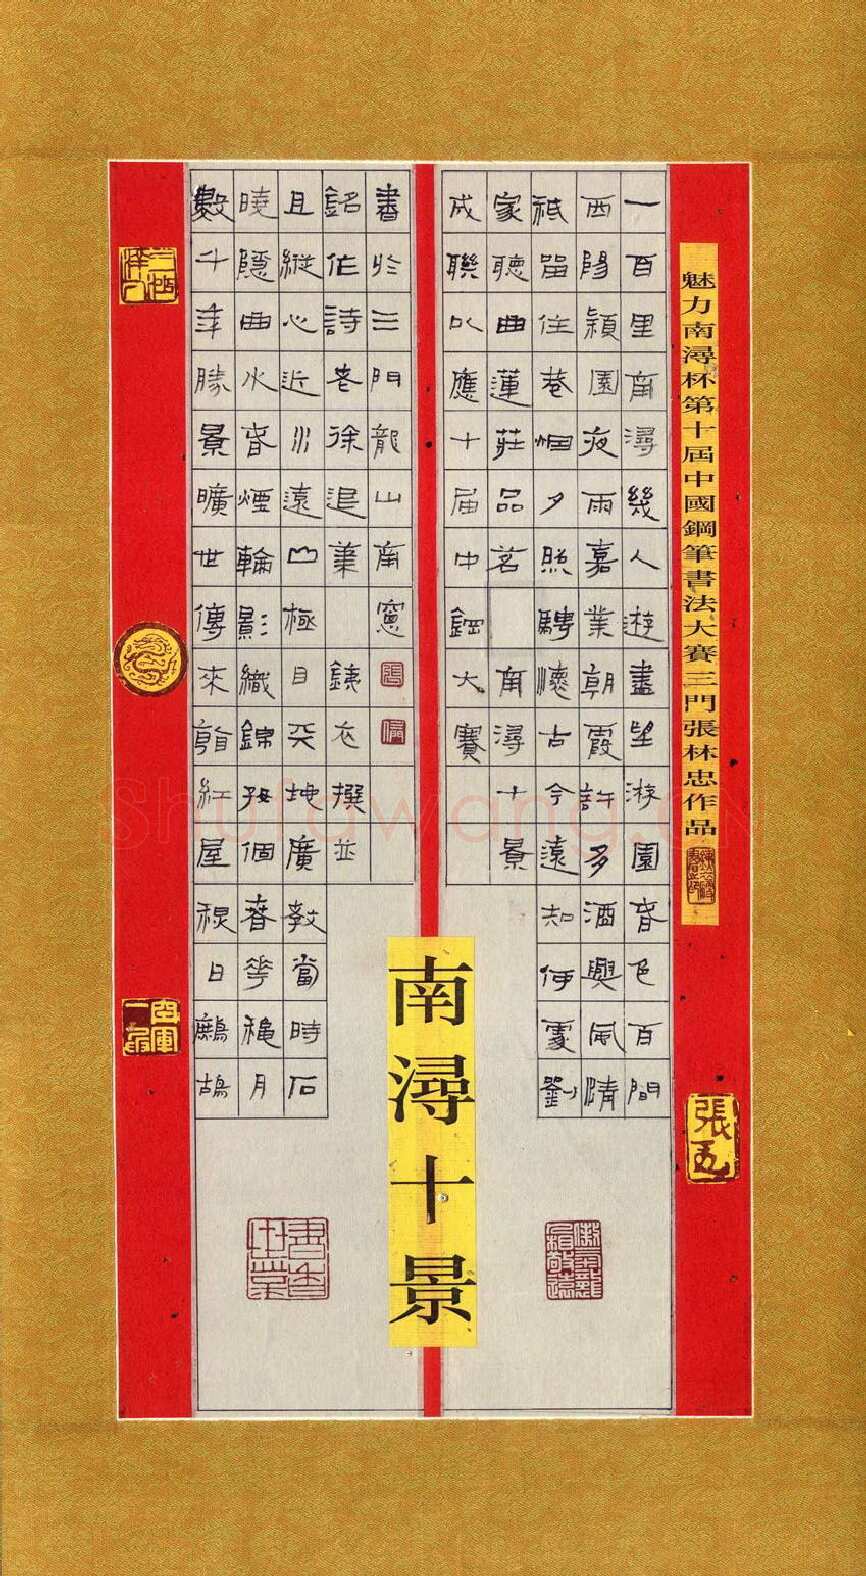 魅力南潯杯第十屆中國鋼筆書法大賽三門張林忠作品
一百里南潯幾人遊盡游園春色百間
西陽穎園夜雨嘉業朝霞許多酒興風清
祗留住巷烟夕照騁懷古今遠知何處劉
家聽曲蓮莊品茗 南潯十景
成聯以應十届中鋼大賽
南潯十景
數千年勝景曠世傳來紅屋日鷓鴣
曉隱曲水春煙輪影織錦個春花穐月
且縱心近川遠山極目天地廣教當時石
銘作詩老徐退筆 銕衣撰並
書於三門龍山南窗